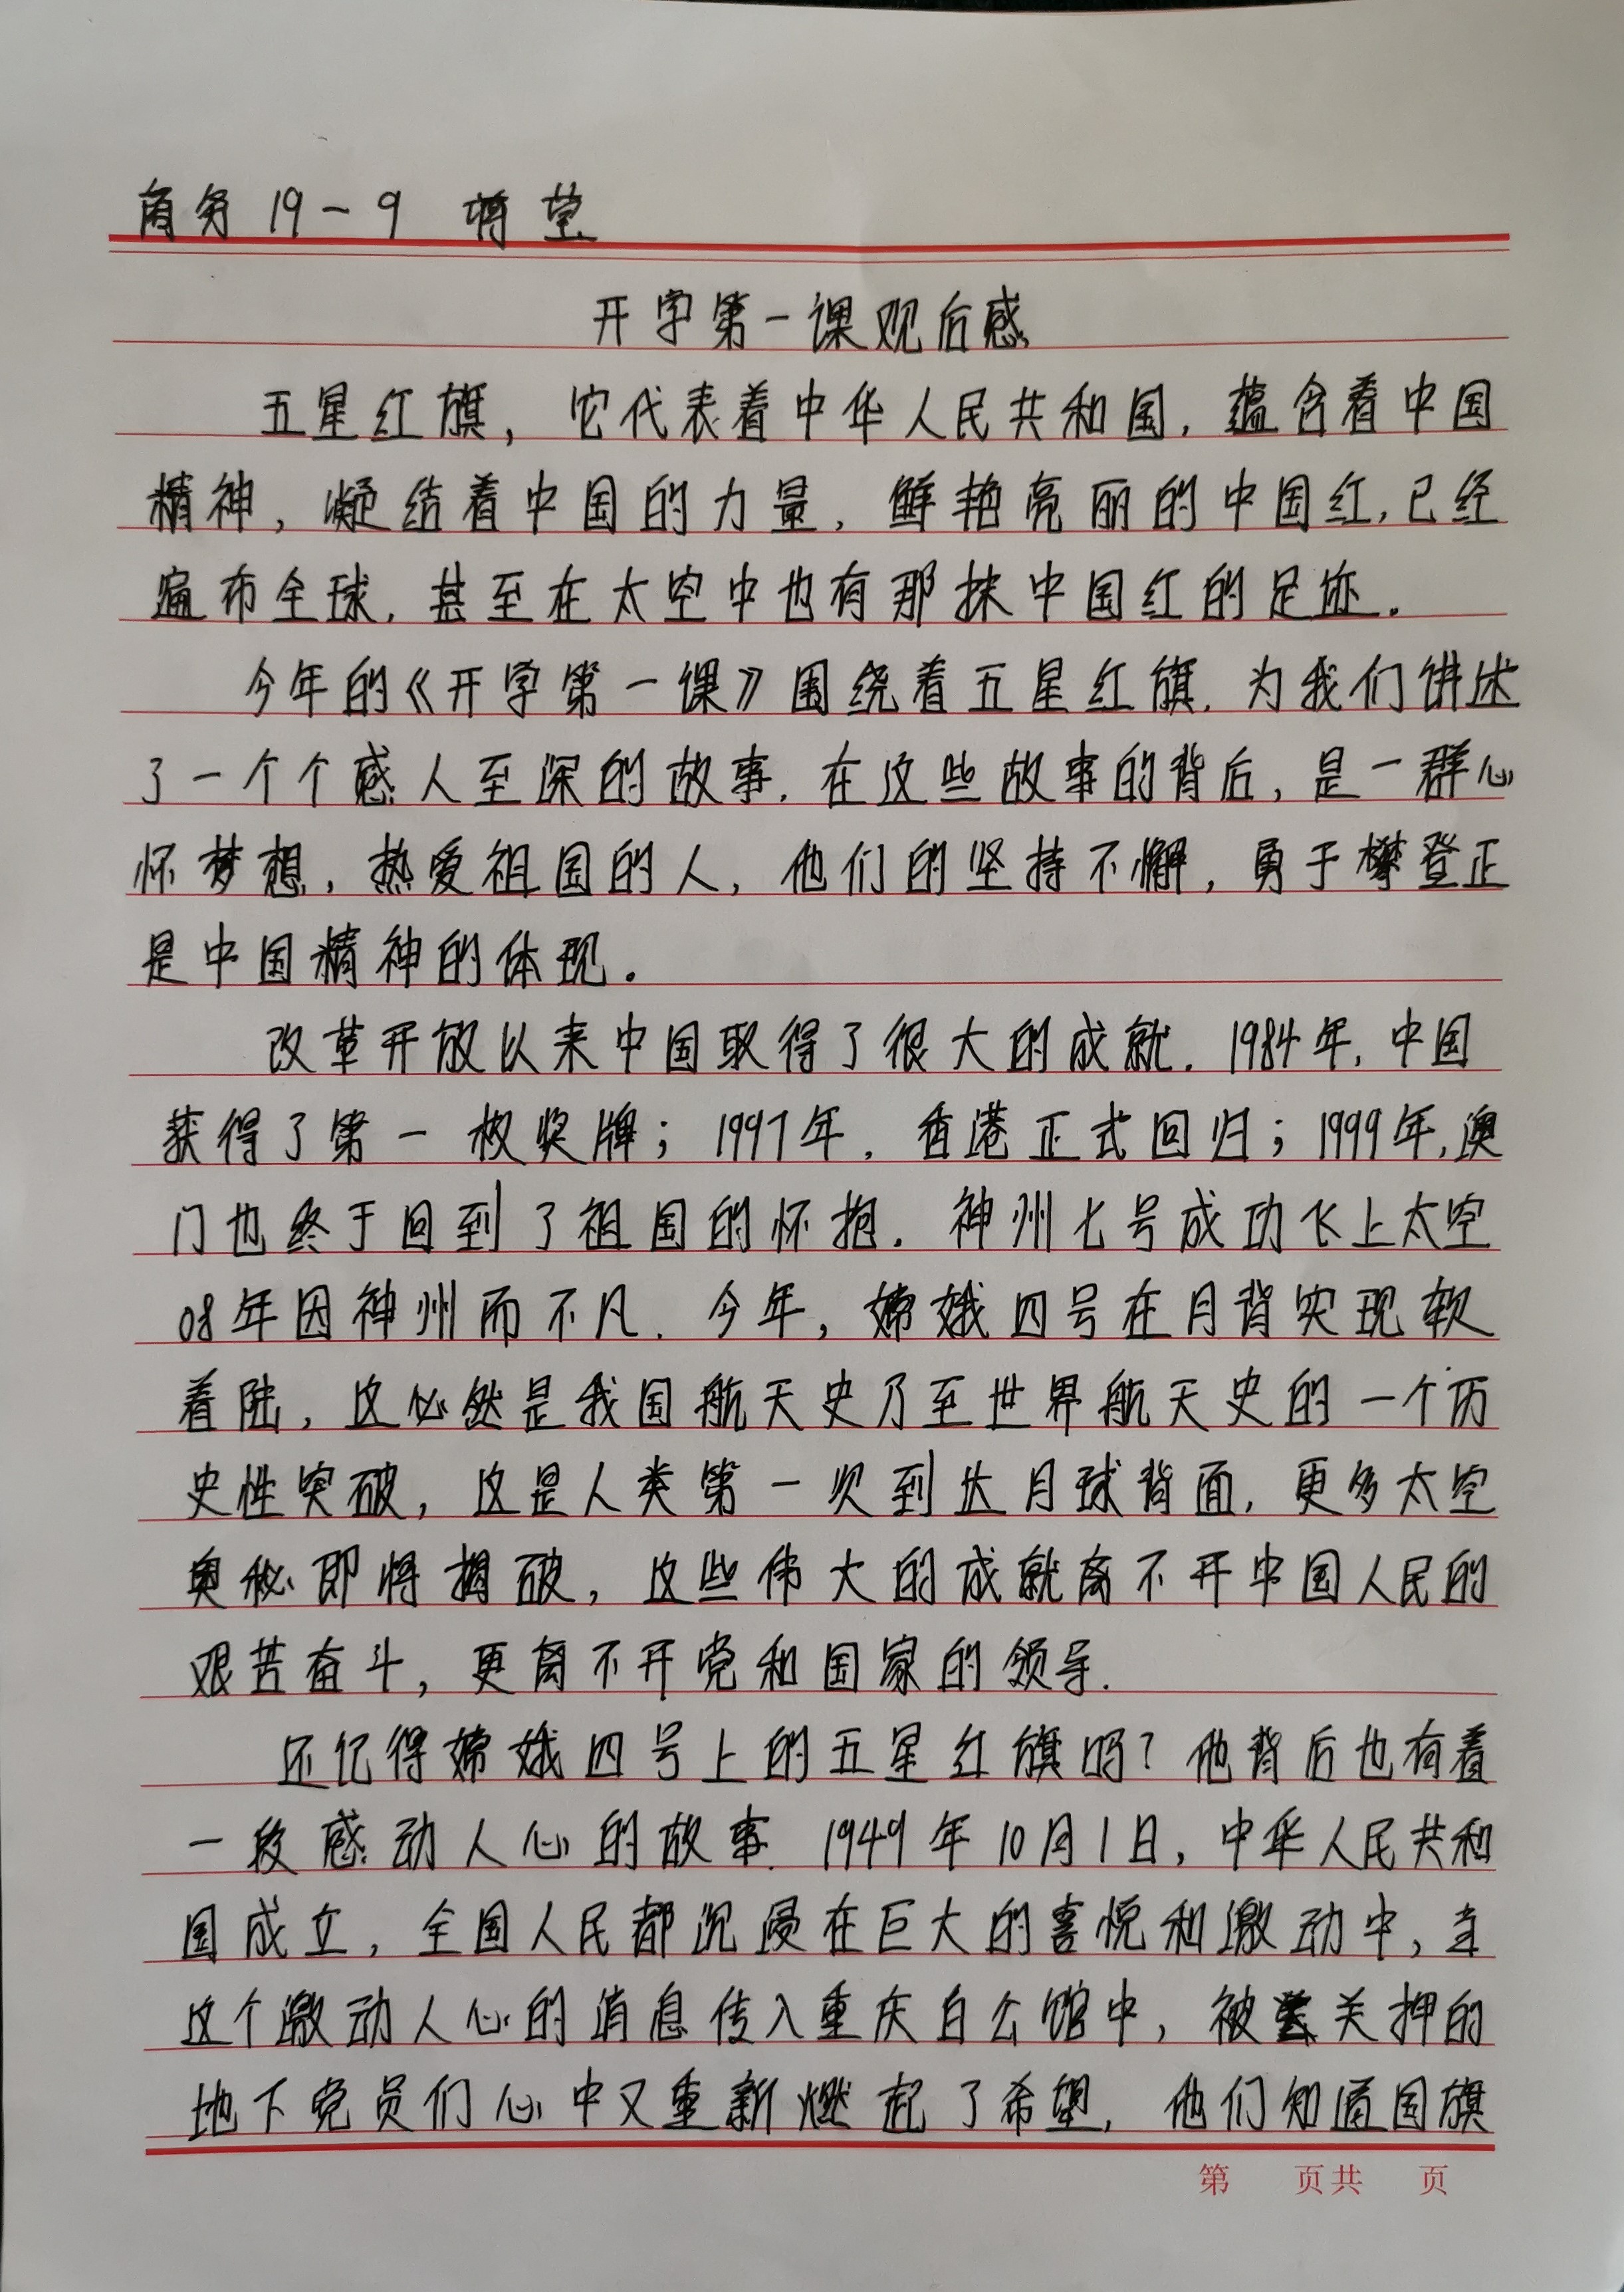 商务19-9 蒋莹
开学第一课观后感
五星红旗，它代表着中华人民共和国，蕴含着中国
精神，凝结着中国的力量，鲜艳亮丽的中国红，已经
遍布全球，甚至在太空中也有那抹中国红的足迹。
今年的《开学第一课》围绕着五星红旗，为我们讲述
了一个个感人至深的故事，在这些故事的背后，是一群心
怀梦想，热爱祖国的人，他们的坚持不懈，勇于攀登正
是中国精神的体现。
改革开放以来中国取得了很大的成就。1984年，中国
获得了第一枚奖牌；1997年，香港正式回归；1999年，澳
门也终于回到了祖国的怀抱。神州七号成功飞上太空
08年因神州而不凡。今年，嫦娥四号在月背实现软
着陆，这必然是我国航天史乃至世界航天史的一个历
史性突破，这是人类第一次到达月球背面，更多太空
奥秘即将揭破，这些伟大的成就离不开中国人民的
艰苦奋斗，更离不开党和国家的领导。
还记得嫦娥四号上的五星红旗吗？他背后也有着
一段感动人心的故事。1949年10月1日，中华人民共和
国成立，全国人民都沉浸在巨大的喜悦和激动中，当
这个激动人心的消息传入重庆白公馆中，被关押的
地下党员们心中又重新燃起了希望，他们知道国旗
第 页共 页